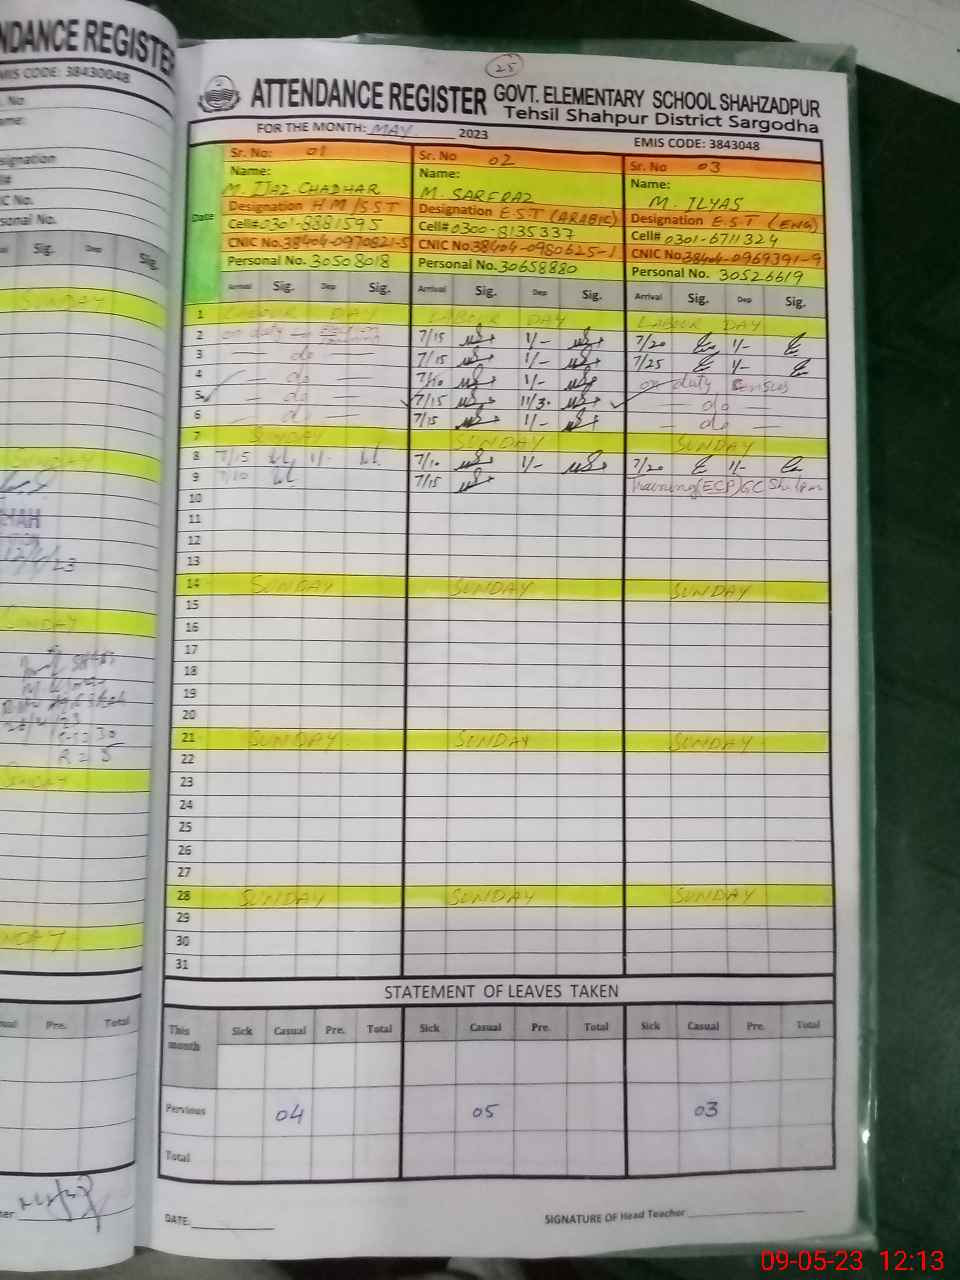 NDANCE REGISTER
EMIS CODE: 38430048
25
ATTENDANCE REGISTER GOVT. ELEMENTARY SCHOOL SHAHZADPUR
Tehsil Shahpur District Sargodha
FOR THE MONTH: MAY 2023
EMIS CODE: 3843048
Date
Sr. No: 01
Name:
M. IJAZ CHADHAR
Designation HM/SST
Cell# 0301-8881595
CNIC No. 38404-0970821-5
Personal No. 30508018
Sr. No 02
Name:
M. SARFRAZ
Designation E.S.T (ARABIC)
Cell# 0300-8135337
CNIC No 38404-0980625-1
Personal No. 30658880
Sr. No 03
Name:
M. ILYAS
Designation E.S.T (ENG)
Cell# 0301-6711324
CNIC No. 38404-0969391-9
Personal No. 30526619
Arrival Sig. Dep Sig. Arrival Sig. Dep Sig. Arrival Sig. Dep Sig.
1 LABOUR DAY LABOUR DAY LABOUR DAY
2 on duty — Training 7/15 1/- 7/20 1/-
3 — do — 7/15 1/- 7/25 1/-
4 — do — 7/10 1/- on duty Census
5 — do — 7/15 11/30 — do —
6 — do — 7/15 1/- — do —
7 SUNDAY SUNDAY SUNDAY
8 7/15 1/- 7/10 1/- 7/20 1/-
9 7/10 7/15 Training (ECP) GC
10
11
12
13
14 SUNDAY SUNDAY SUNDAY
15
16
17
18
19
20
21 SUNDAY SUNDAY SUNDAY
22
23
24
25
26
27
28 SUNDAY SUNDAY SUNDAY
29
30
31
STATEMENT OF LEAVES TAKEN
This month Sick Casual Pre. Total Sick Casual Pre. Total Sick Casual Pre. Total
Pervious 04 05 03
Total
DATE.
SIGNATURE OF Head Teacher
09-05-23 12:13